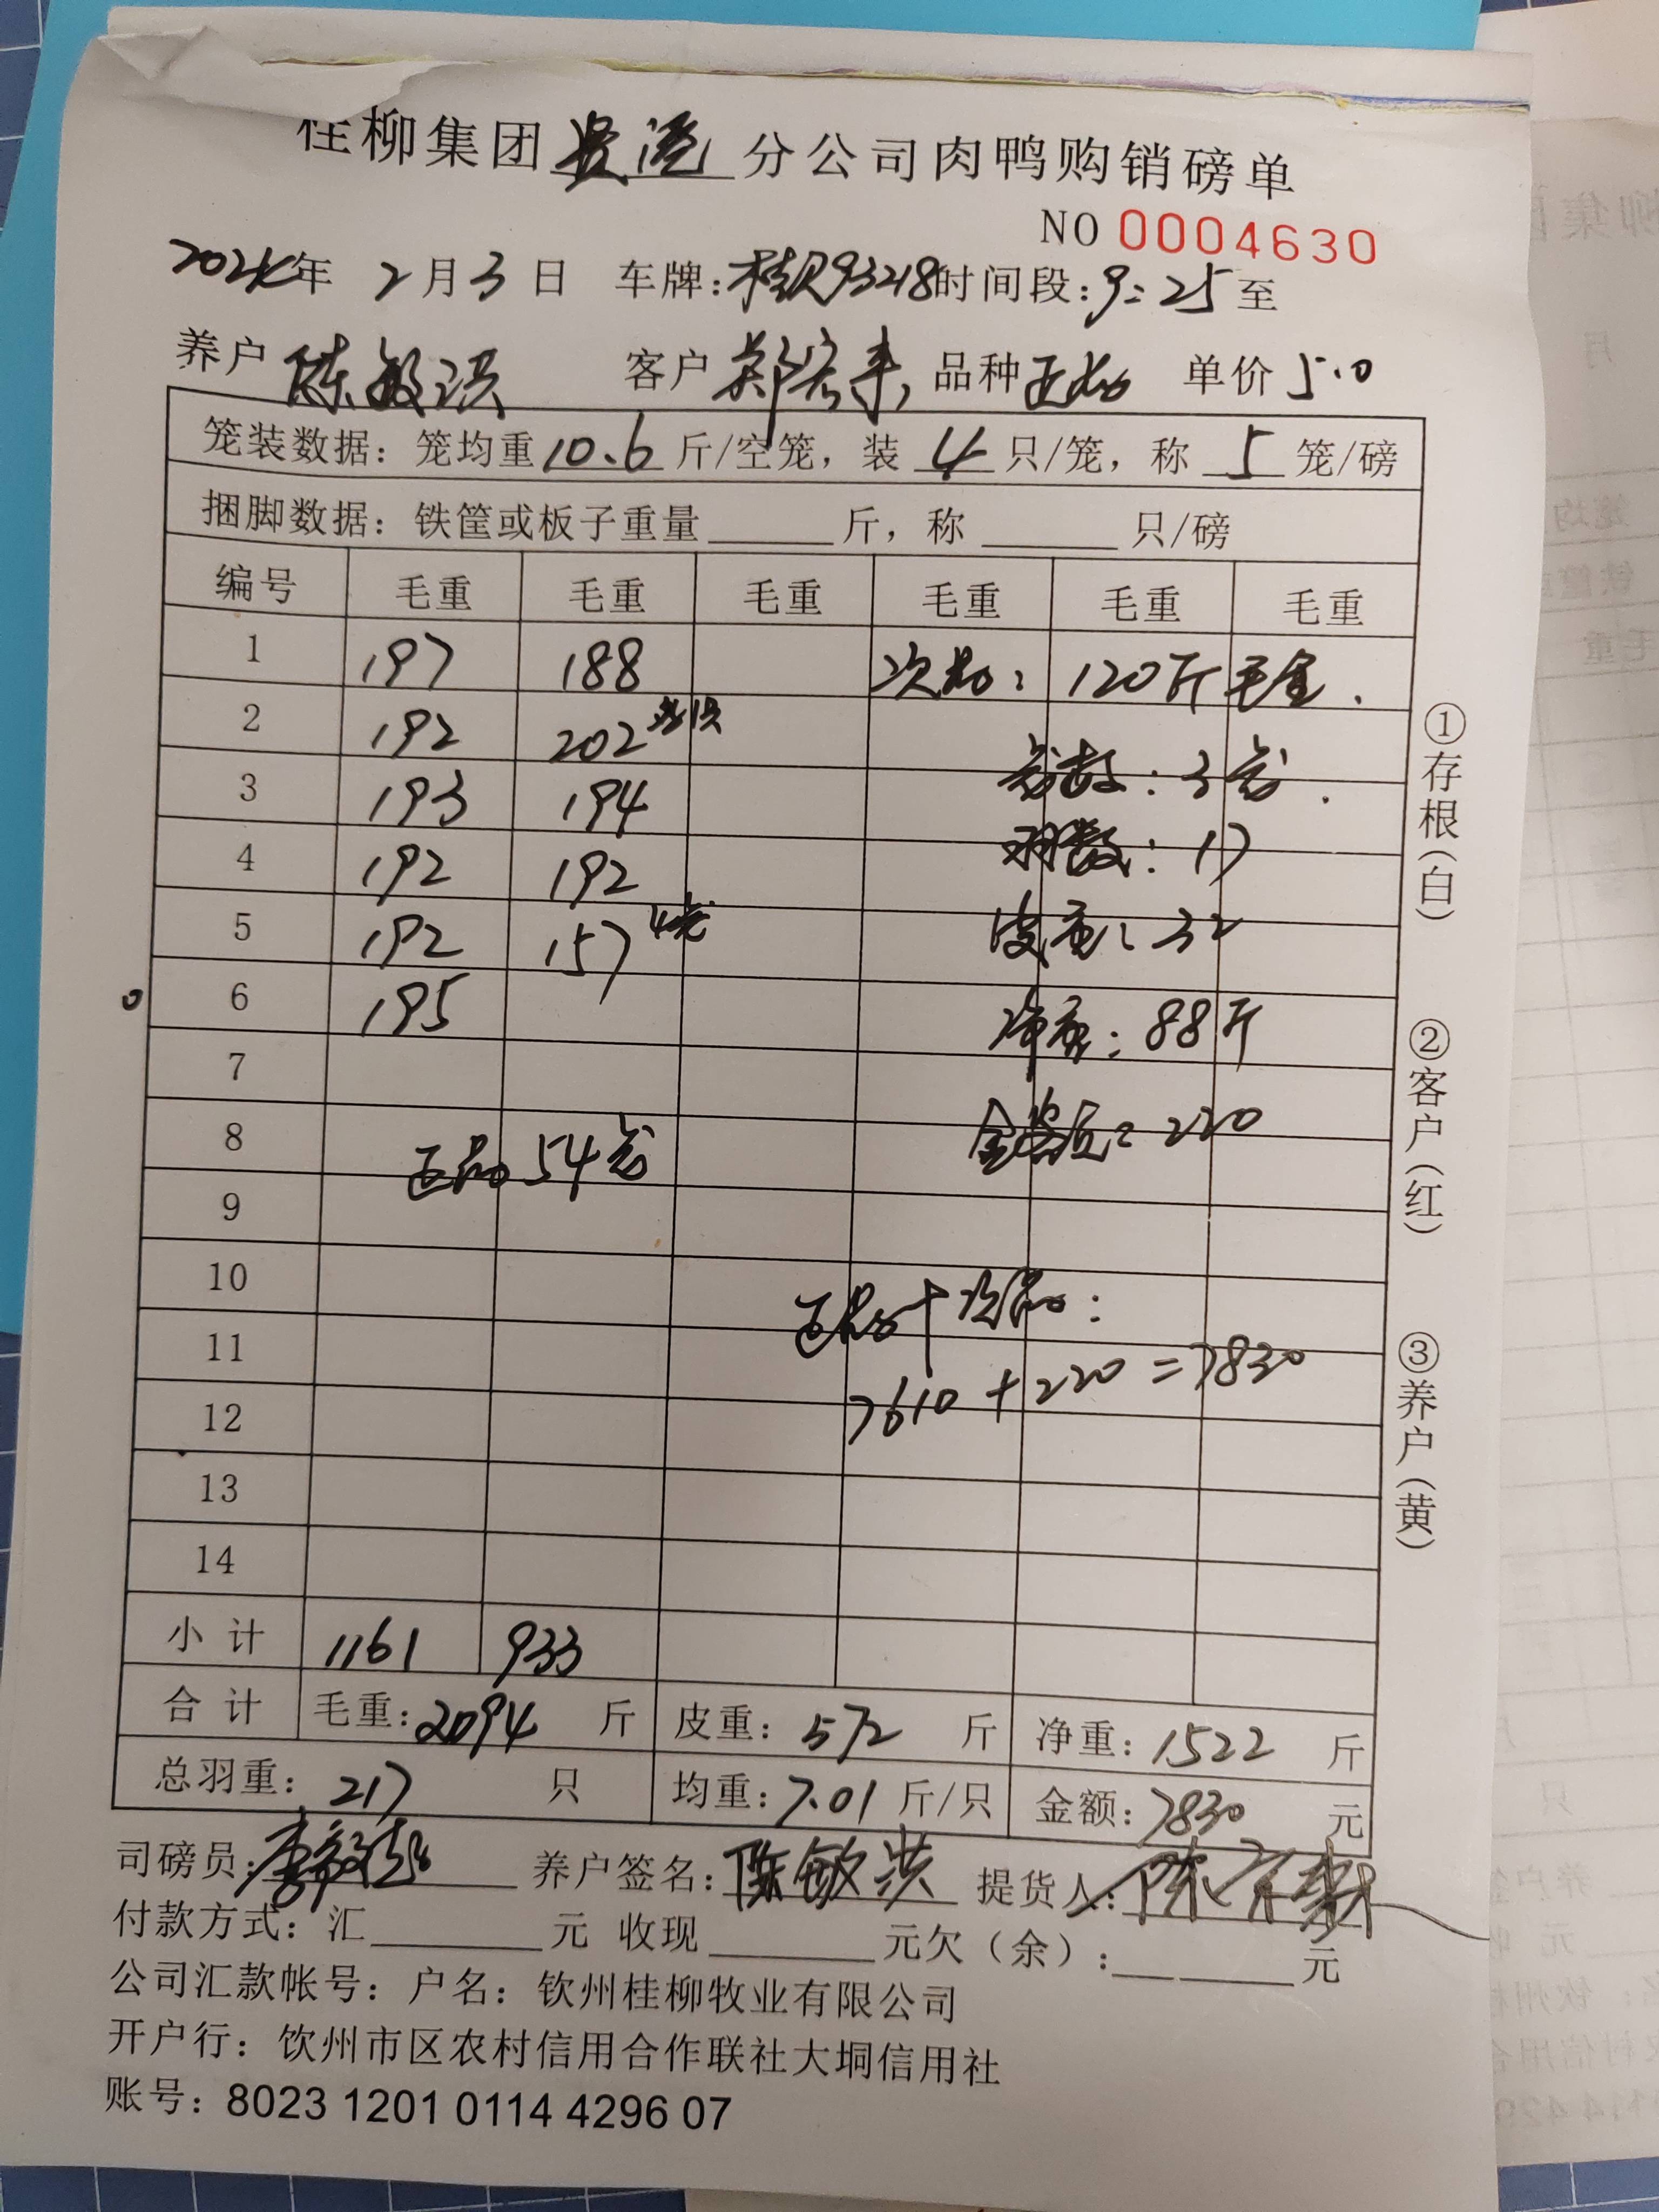 桂柳集团贵港分公司肉鸭购销磅单
NO 0004630
2024年 2月3日 车牌:桂R93218时间段:9:25至
养户 陈敏洪 客户 郑宏来 品种 正品 单价 5.0
笼装数据：笼均重10.6斤/空笼，装4只/笼，称5笼/磅
捆脚数据：铁筐或板子重量______斤，称______只/磅
编号 毛重 毛重 毛重 毛重 毛重 毛重
1 197 188 次品: 120斤毛重.
2 192 202 多1只
笼数: 3笼.
3 193 194
羽数: 17
4 192 192
5 192 157 4笼
皮重: 32
6 195
净重: 88斤
7
金额: 220
8 正品54笼
9
10
正品+次品:
11
7610+220=7830
12
13
14
小计 1161 933
合计 毛重:2094斤 皮重:572斤 净重:1522斤
总羽重:217只 均重:7.01斤/只 金额:7830元
司磅员: 养户签名:陈敏洪 提货人:
付款方式：汇______元 收现______元欠（余）:______元
公司汇款帐号：户名：钦州桂柳牧业有限公司
开户行：钦州市区农村信用合作联社大垌信用社
账号：8023 1201 0114 4296 07
①存根(白)
②客户(红)
③养户(黄)